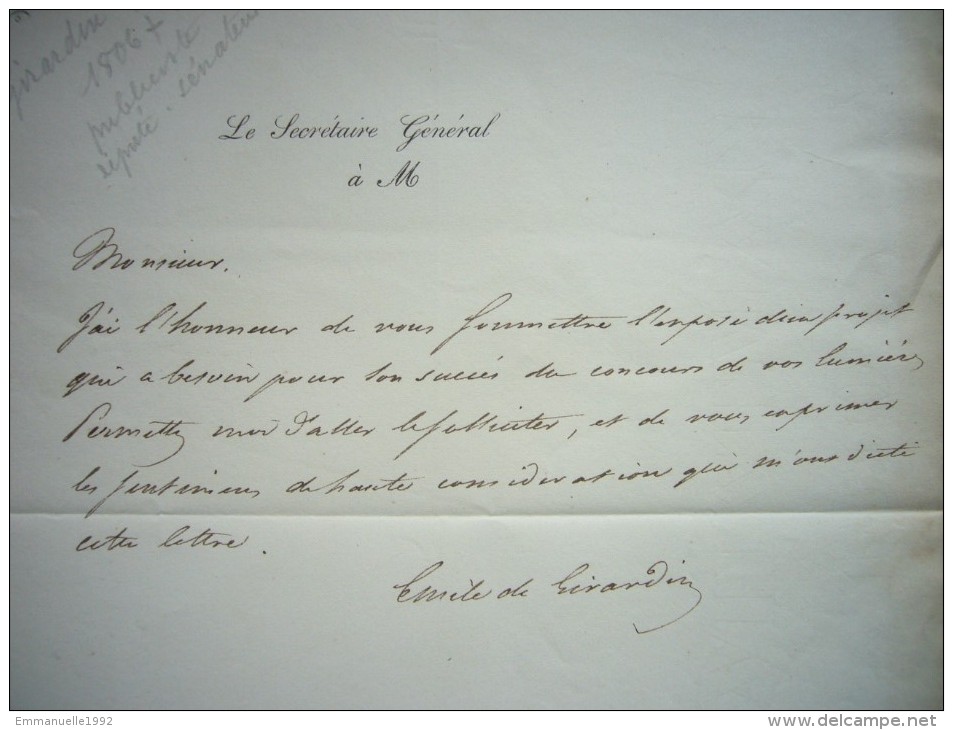 Girardin
1806 +
publiciste
député. sénateur
Le Secrétaire Général
à M
Monsieur.
J'ai l'honneur de vous soumettre l'exposé d'un projet
qui a besoin pour son succès du concours de vos lumières
Permettez moi d'aller le solliciter, et de vous exprimer
les sentimens de haute considération qui m'ont dicté
cette lettre.
Emile de Girardin
Emmanuelle1992
www.delcampe.net